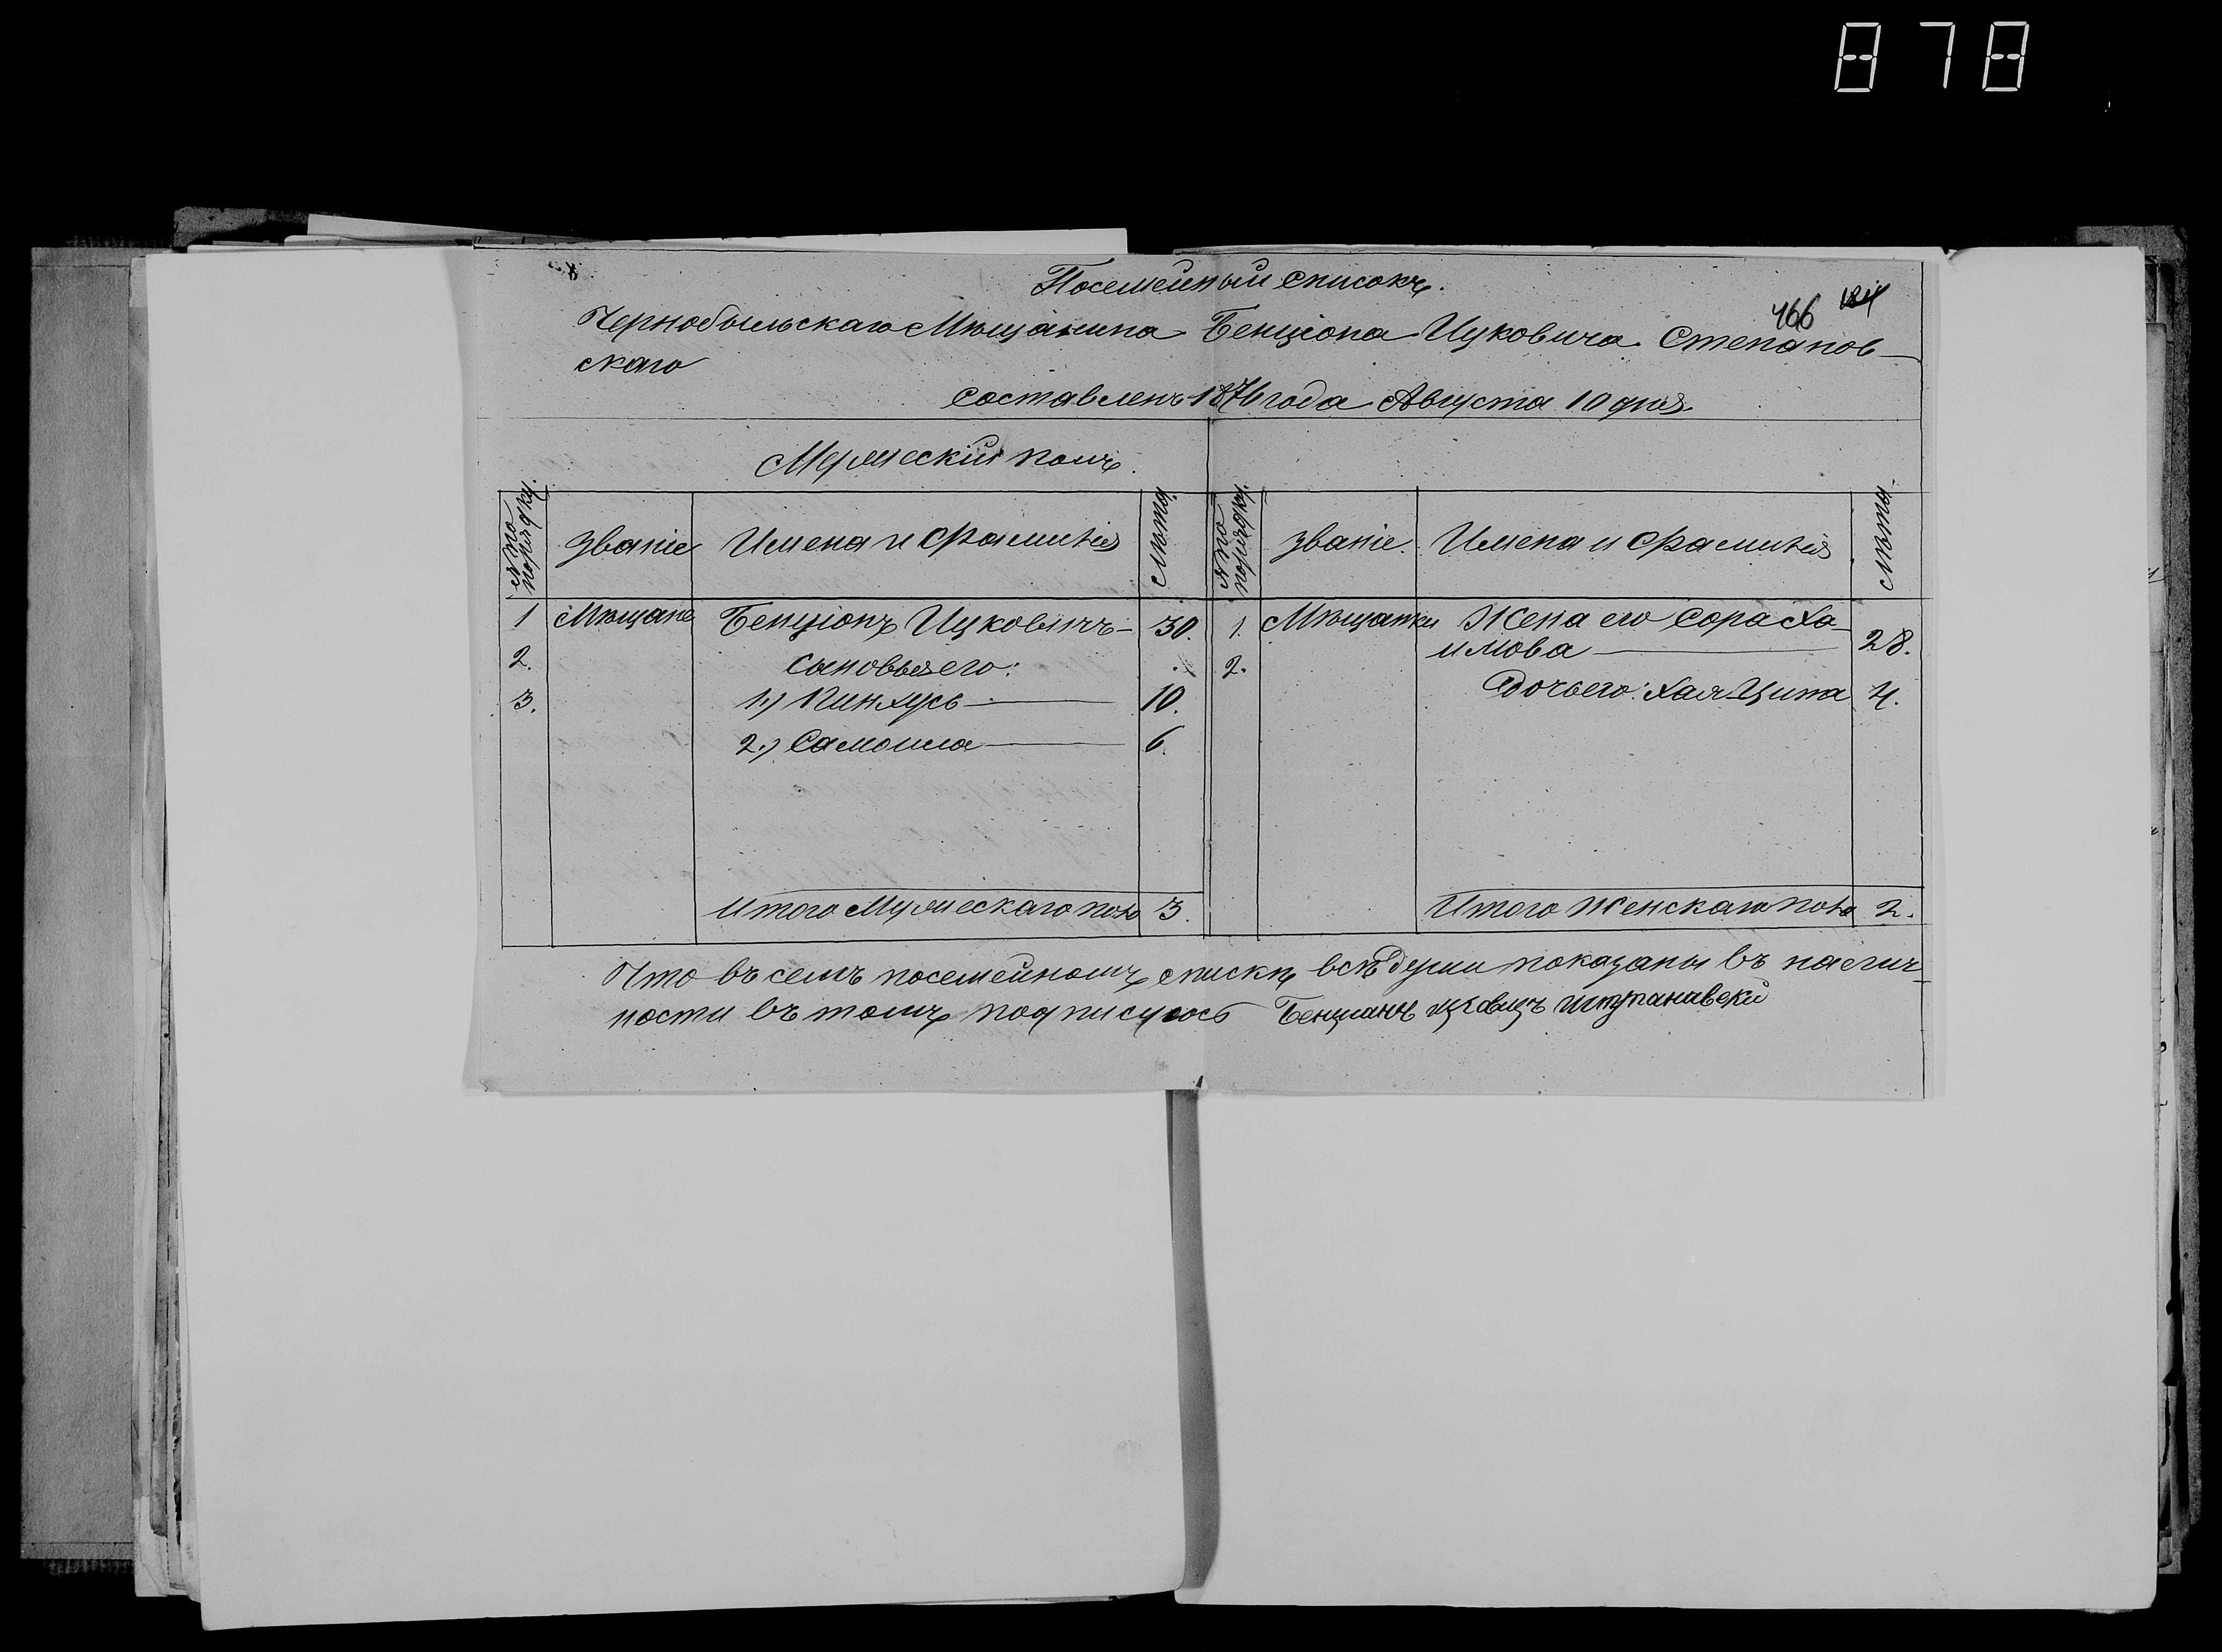 878
Посемейный списокъ.
466
Чернобыльскаго Мѣщанина Бенціона Ицковича Степанов-
скаго
Составленъ 1876 года Августа 10 дня.
Мужескій полъ.
№ по порядку. Званіе Имена и Фамилія Лѣта. № по порядку. Званіе. Имена и Фамилія Лѣта.
1 Мѣщане Бенціонъ Ицковичъ- 30. 1. Мѣщанки Жена его Сора Ха-
имова 28.
2. Сыновья его: 2.
3. 1.) Пинхусь 10. Дочь его: Хая-Ципа 4.
2.) Самоила 6.
Итого Мужескаго пола 3. Итого Женскаго пола 2.
Что въ семъ посемейномъ спискѣ всѣ души показаны въ налич-
ности въ томъ подписуюсь Бенцианъ